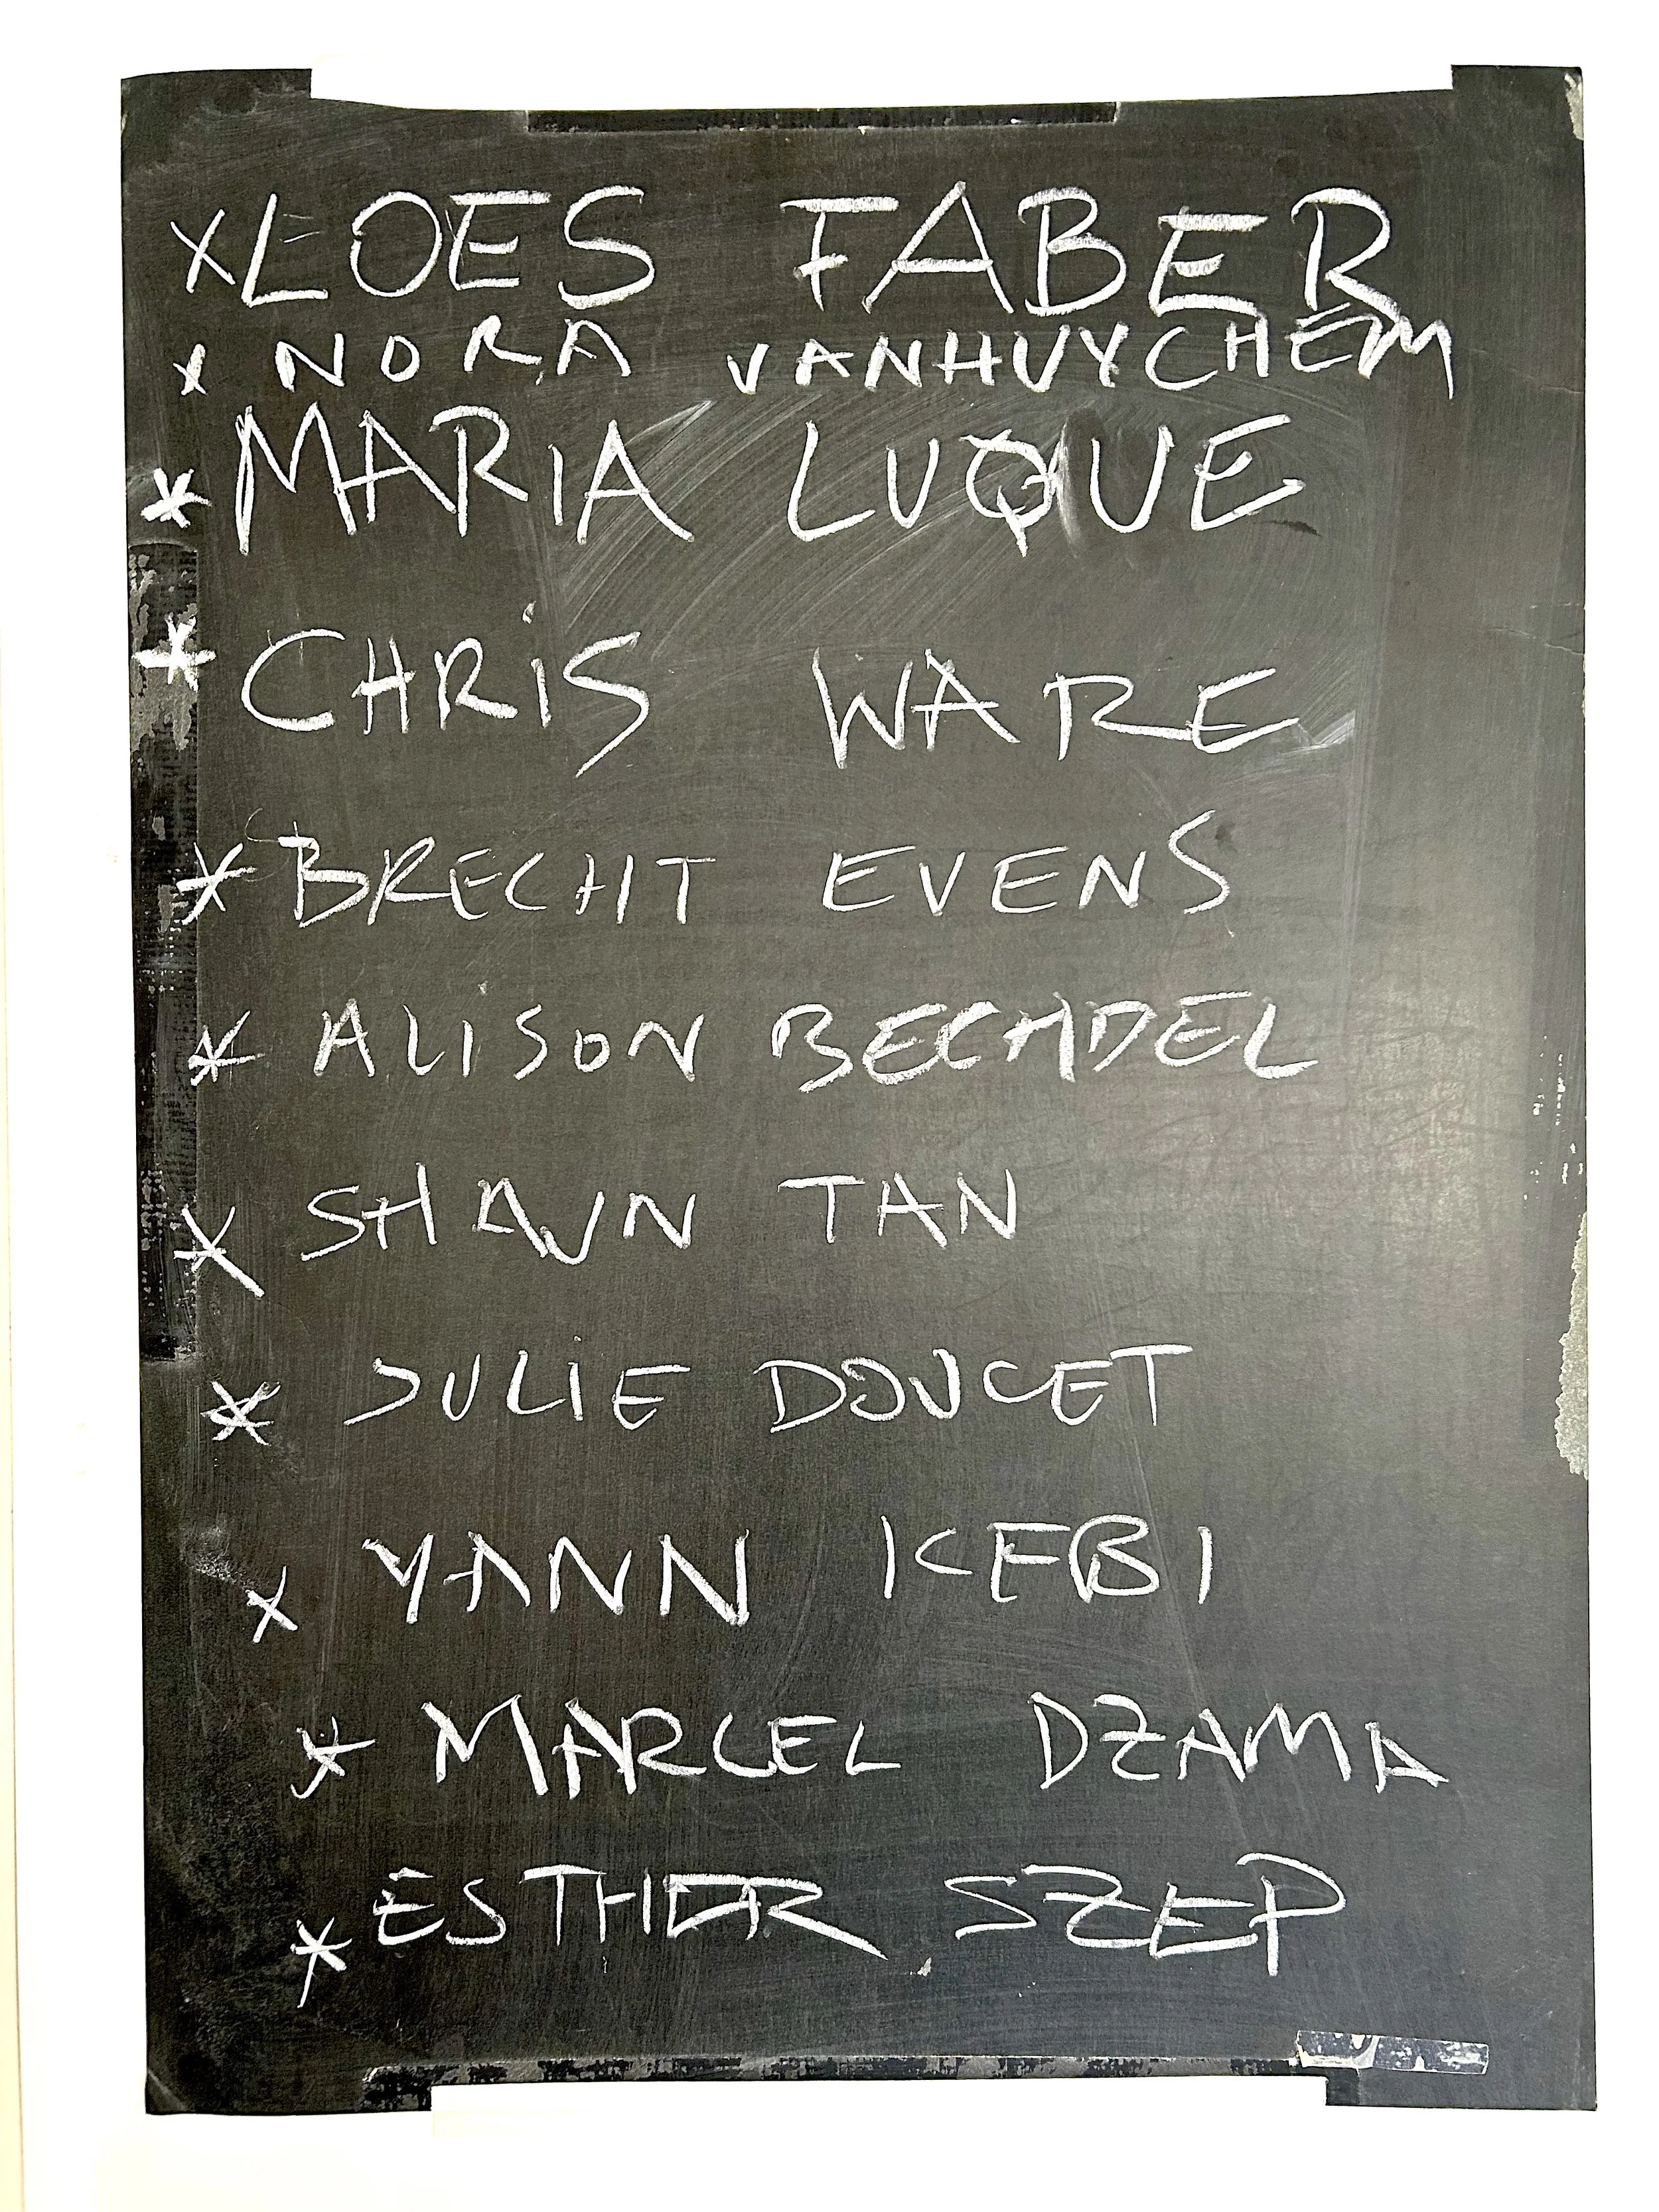 x LOES FABER
x NORA VANHUYCHEM
* MARIA LUQUE
* CHRiS WARE
* BRECHT EVENS
* ALISON BECHDEL
* SHAUN TAN
* JULiE DOUCET
x YANN KEBI
* MARCEL DZAMA
* ESTHER SZEP